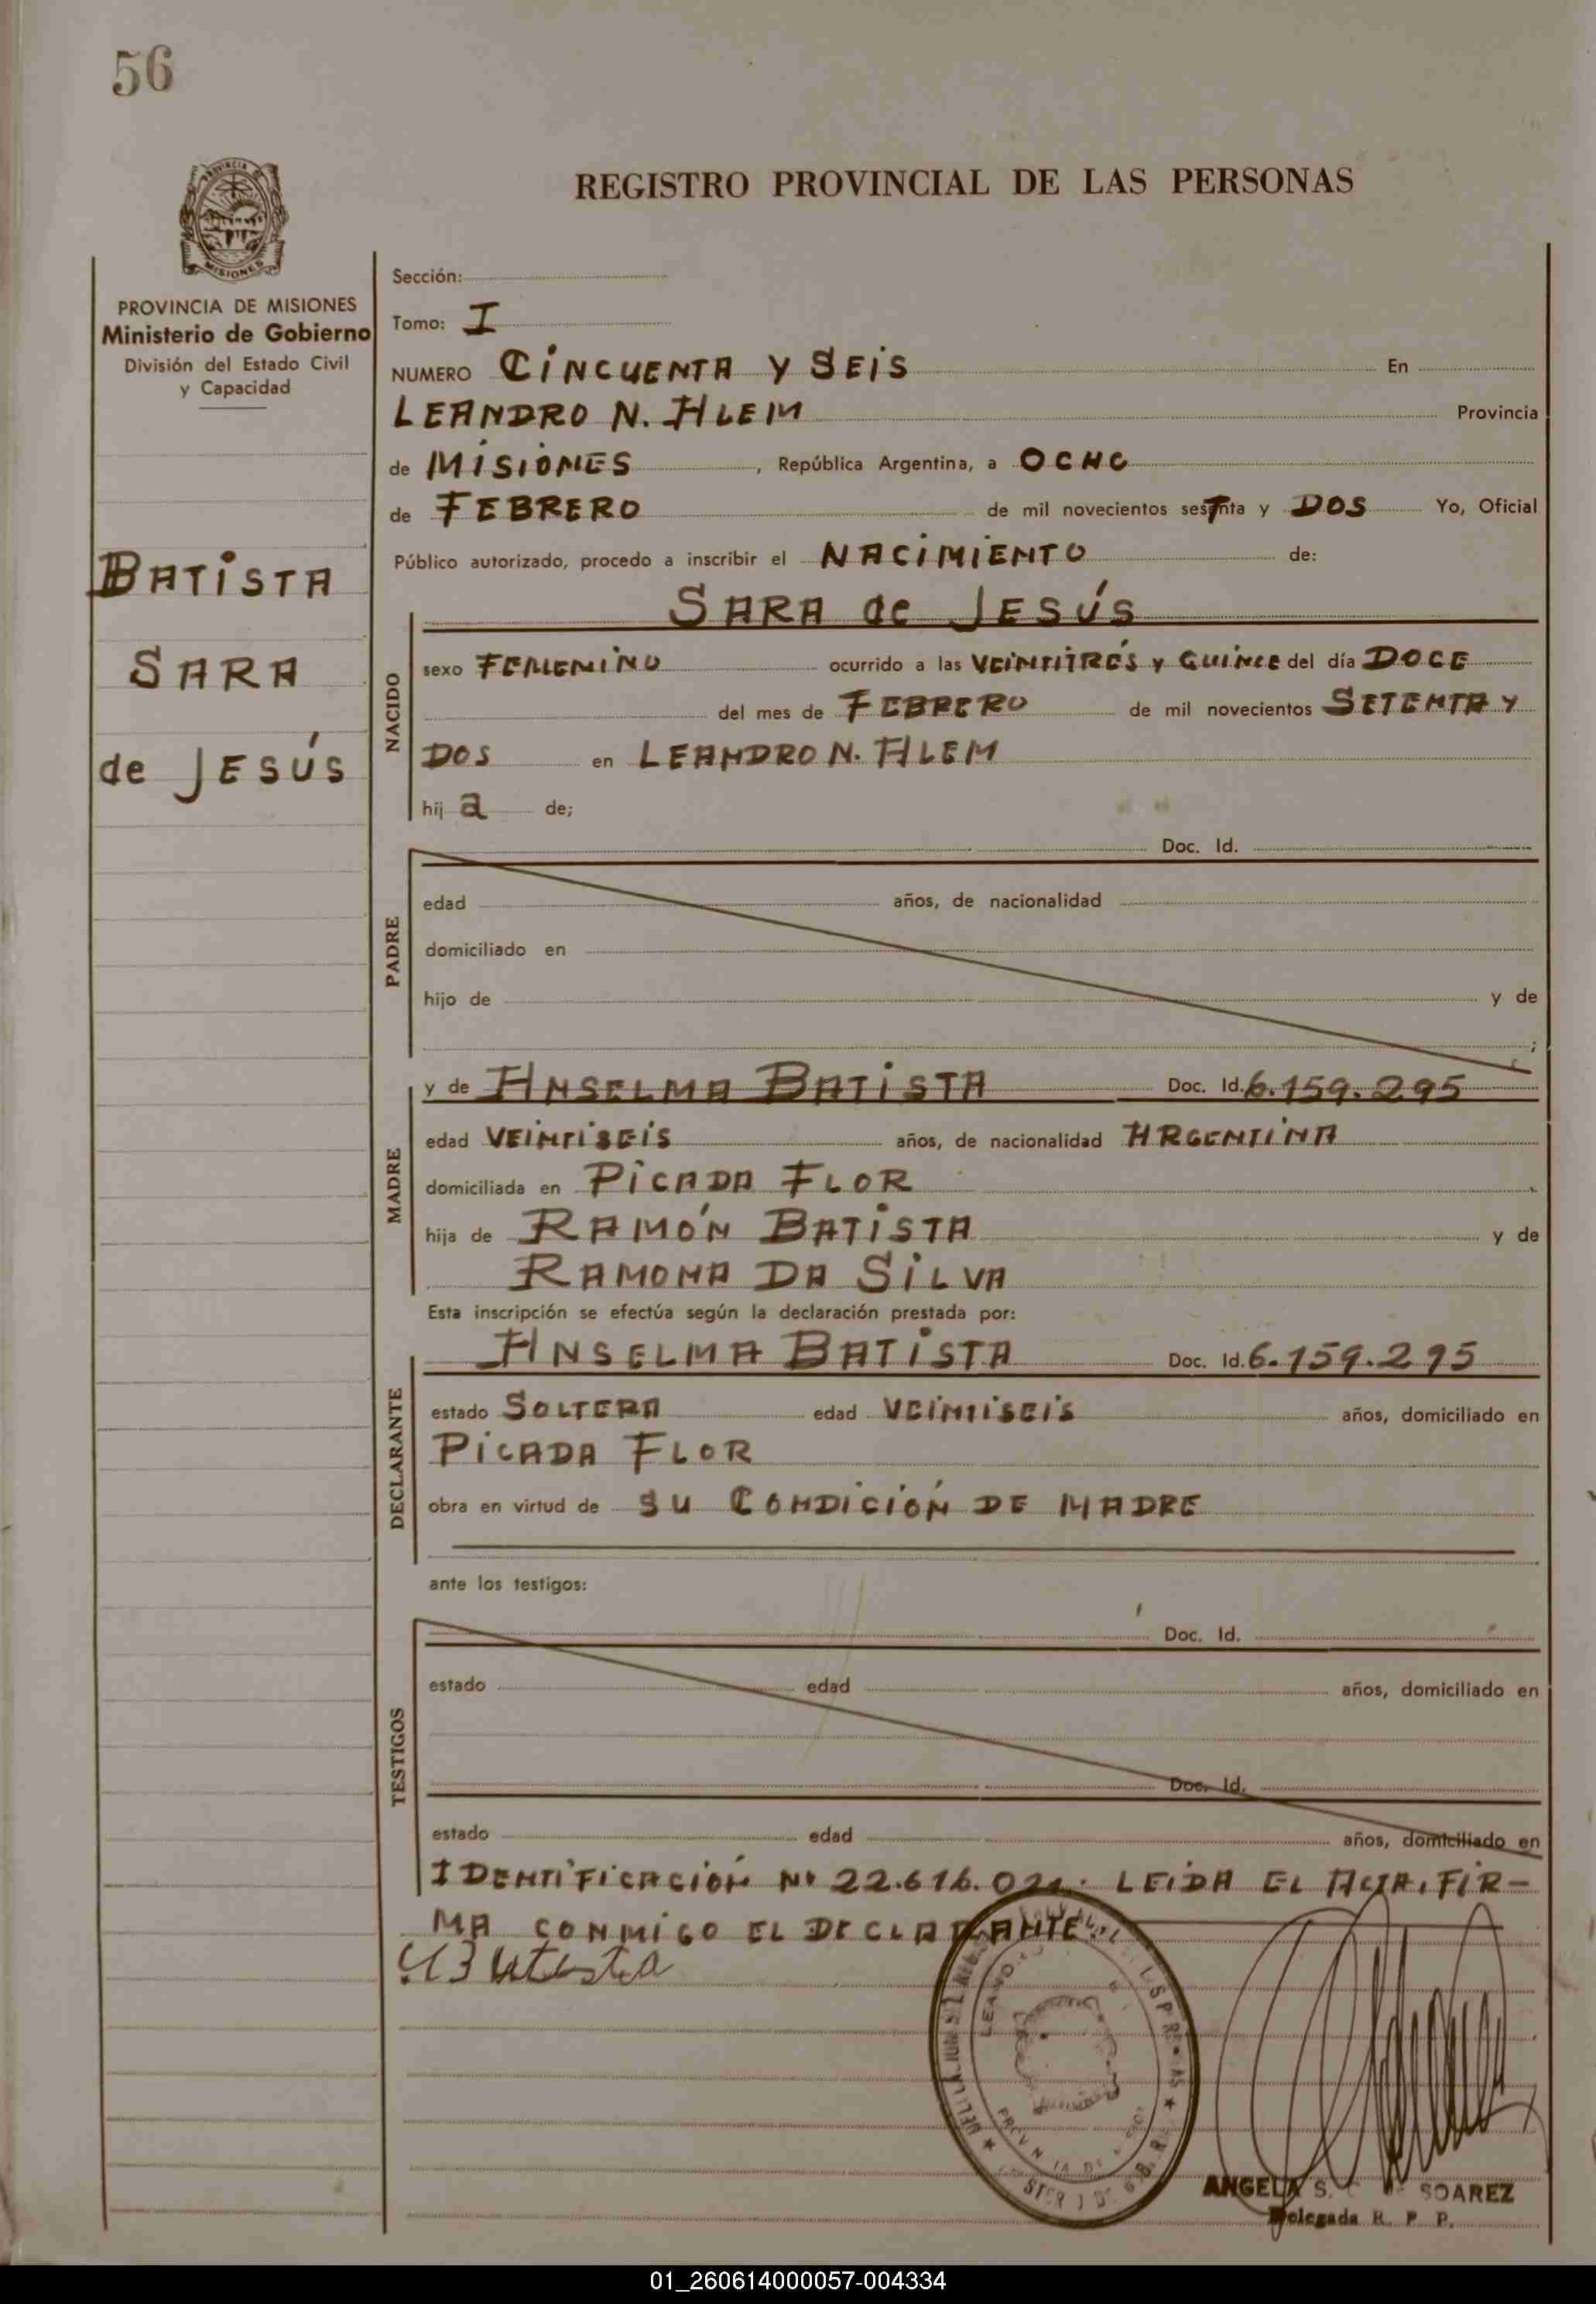 56
REGISTRO PROVINCIAL DE LAS PERSONAS
PROVINCIA DE MISIONES
Ministerio de Gobierno
División del Estado Civil
y Capacidad
BATISTA
SARA
de JESÚS
Sección:
Tomo: I
NUMERO CINCUENTA Y SEIS En
LEANDRO N. ALEM Provincia
de MISIONES, República Argentina, a OCHO
de FEBRERO de mil novecientos sesTnta y DOS Yo, Oficial
Público autorizado, procedo a inscribir el NACIMIENTO de:
SARA de JESÚS
NACIDO
sexo FEMENINO ocurrido a las VEINTITRÉS y QUINCE del día DOCE
del mes de FEBRERO de mil novecientos SETENTA Y
DOS en LEANDRO N. ALEM
hij a de;
PADRE
Doc. Id.
edad años, de nacionalidad
domiciliado en
hijo de y de
;
MADRE
y de ANSELMA BATISTA Doc. Id. 6.159.295
edad VEINTISEIS años, de nacionalidad ARGENTINA
domiciliada en PICADA FLOR
hija de RAMÓN BATISTA y de
RAMONA DA SILVA
Esta inscripción se efectúa según la declaración prestada por:
DECLARANTE
ANSELMA BATISTA Doc. Id. 6.159.295
estado SOLTERA edad VEINTISEIS años, domiciliado en
PICADA FLOR
obra en virtud de SU CONDICIÓN DE MADRE
ante los testigos:
TESTIGOS
Doc. Id.
estado edad años, domiciliado en
Doc. Id.
estado edad años, domiciliado en
IDENTIFICACIÓN Nº 22.616. LEIDA EL ACTA, FIR-
MA CONMIGO EL DECLARANTE
ANGELA S. SOAREZ
Delegada R. P. P.
01_260614000057-004334